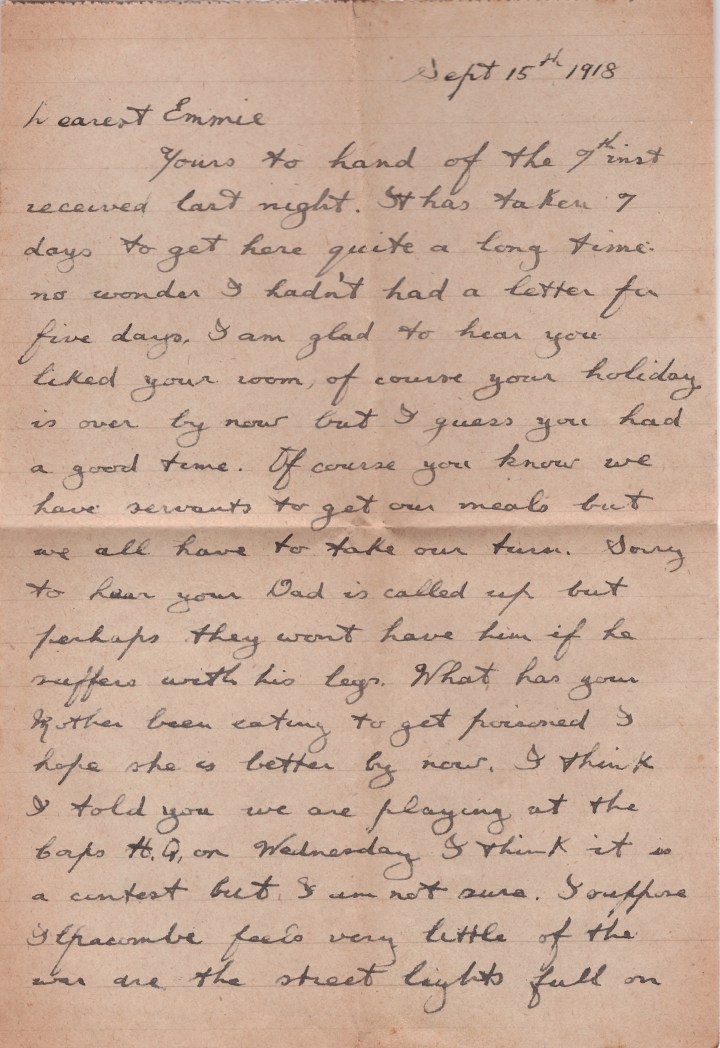 Sept 15th 1918
Dearest Emmie
Yours to hand of the 7th inst
received last night. It has taken 7
days to get here quite a long time.
no wonder I hadn't had a letter for
five days. I am glad to hear you
liked your room, of course your holiday
is over by now but I guess you had
a good time. Of course you know we
have servants to get our meals but
we all have to take our turn. Sorry
to hear your Dad is called up but
perhaps they wont have him if he
suffers with his legs. What has your
Mother been eating to get poisoned I
hope she is better by now. I think
I told you we are playing at the
Corps H.Q, on Wednesday I think it is
a contest but I am not sure. I suppose
Ilfracombe feels very little of the
war are the street lights full on